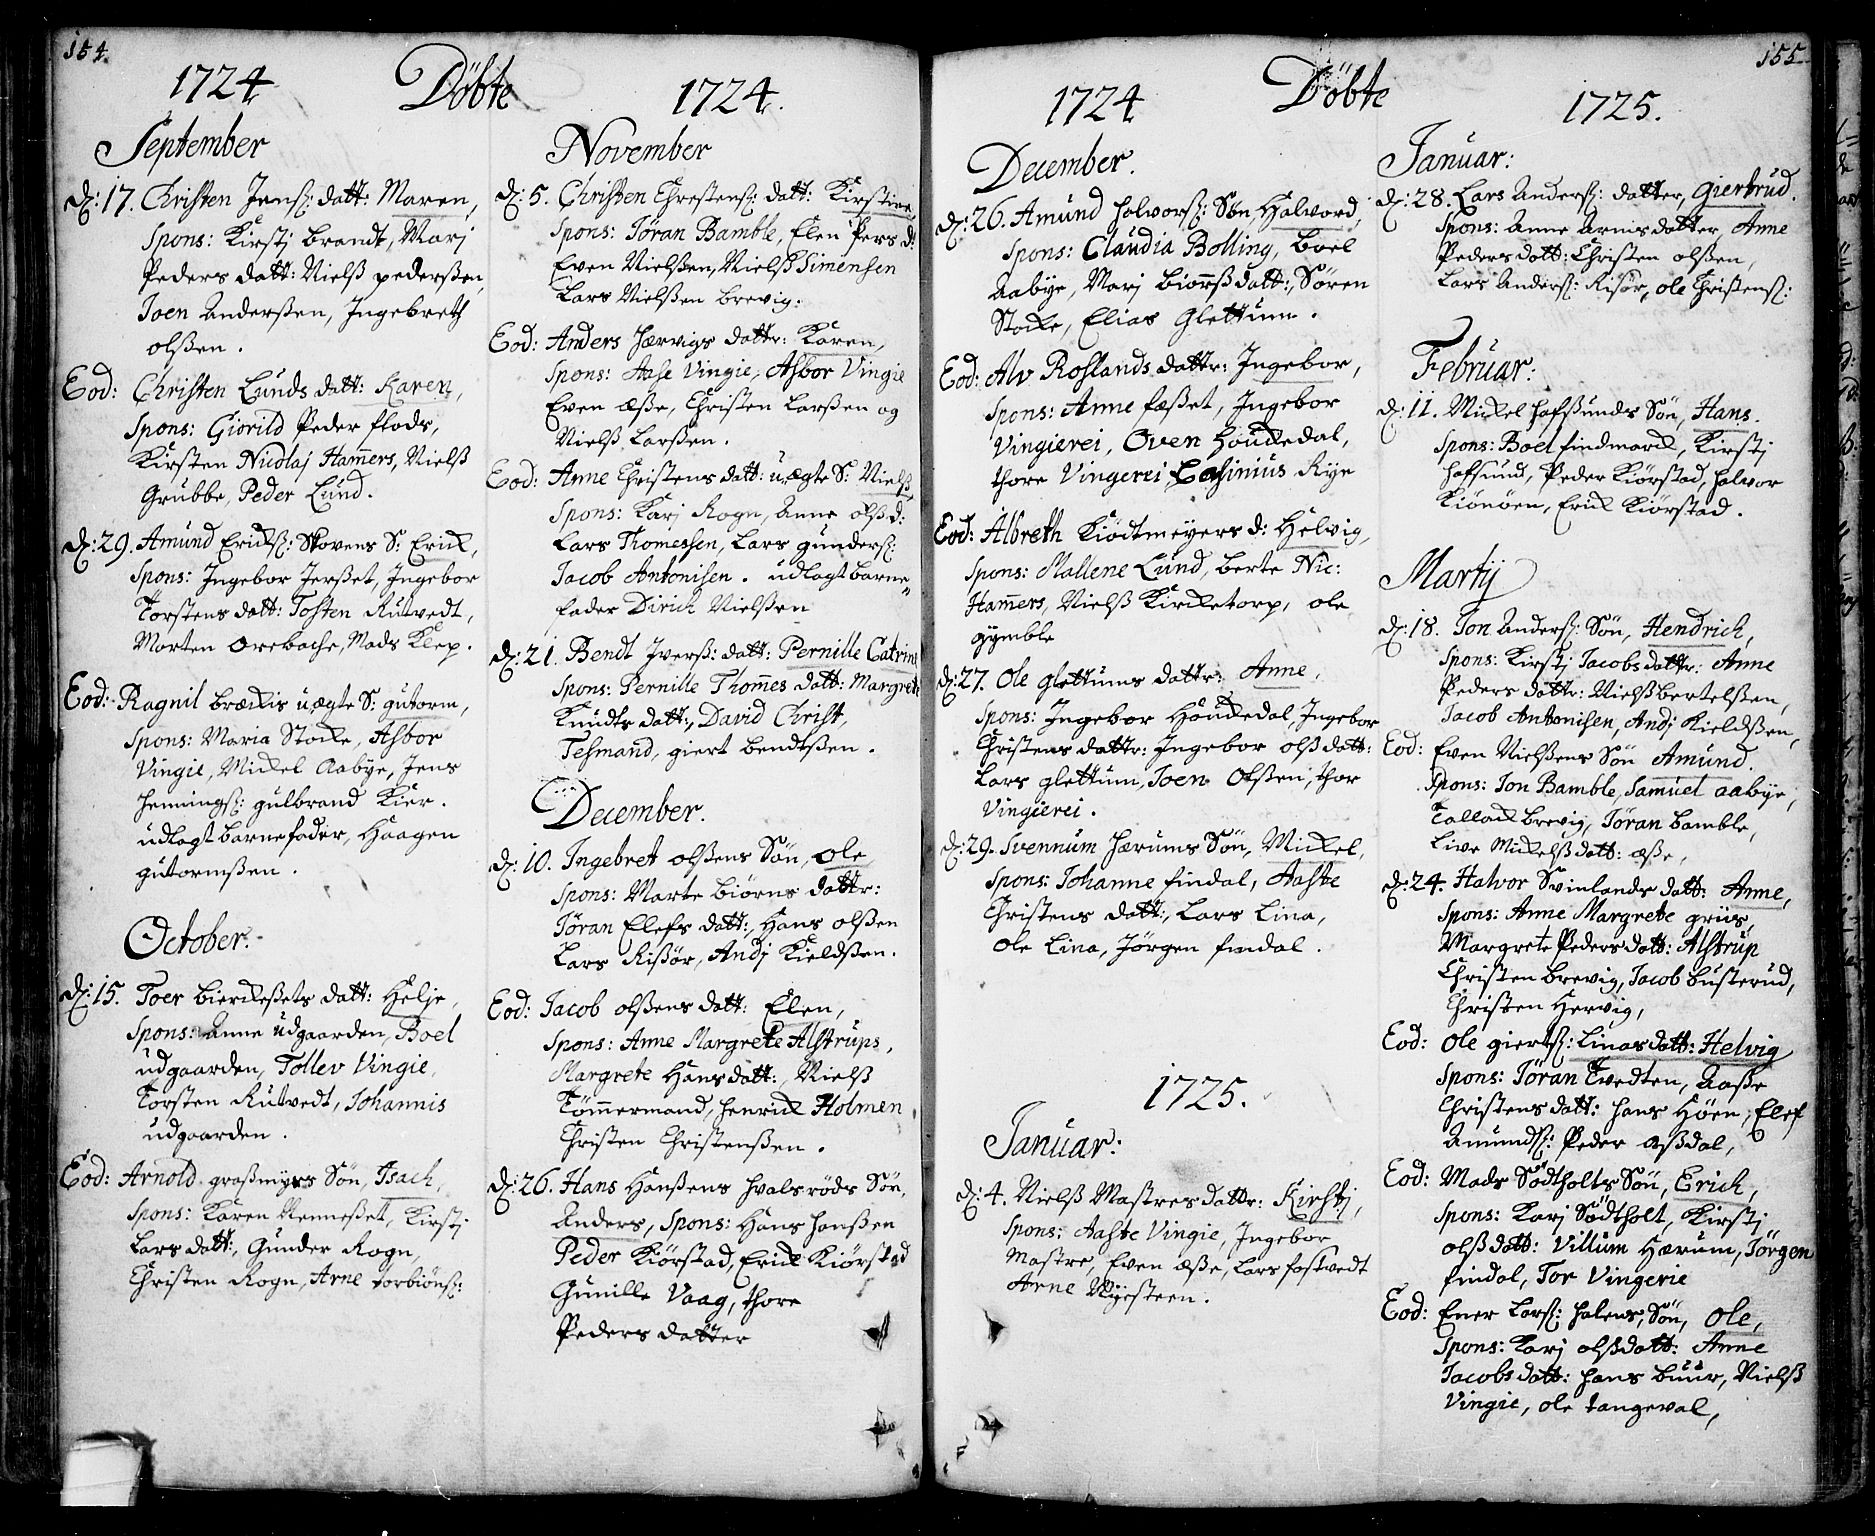 154.
Döbte
1724
September
d: 17. Christen Jenß: datt: Maren,
Spons: Kirstj Brandt, Marj
Peders datt: Nielß pederßen,
Joen Anderßen, Ingebreth
olßen.
Eod: Christen Lunds datt: Karen,
Spons: Giorild Peder flods,
Kirsten Nicolaj Ham̄ers, Nielß
Grubbe, Peder Lund.
d: 29. Amund Erichß: Skovens S: Erich,
Spons: Ingebor Jerßet, Ingebor
Torstens datt: Tosten Rutvedt,
Morten Orebache, Mads Klep.
Eod: Ragnil bræckis uægte S: gutorm,
Spons: Maria Stocke, Asbor
Vingie, Mickel Aabye, Jens
Henningß: gulbrand Kier.
udlagt barnefader, Haagen
gutormßen.
October.
d: 15. Toer bierckeßets datt: Helje,
Spons: Anne udgaarden, Boel
udgaarden, Tollev Vingie,
Torsten Rutvedt, Johannis
udgaarden.
Eod: Arnold graßmyrs Sön, Isach,
Spons: Karen Venneßet, Kirstj
Lars datt:, Gunder Rogn,
Christen Rogn, Arne torbiönß:
1724.
November
d: 5. Christen Chrestenß: datt: Kirstine,
Spons: Jöran Bamble, Elen Pers d:
Even Nielßen, Nielß Simensen
Lars Nielßen brevig:
Eod: Anders hærvigs dattr: Karen,
Spons: Aase Vingie, Asbor Vingie
Even æße, Christen Larßen og
Nielß Larßen.
Eod: Anne Christens datt: uægte S: Nielß,
Spons: Karj Rogn, Anne olß d:
Lars Thomessen, Lars gunderß:
Jacob Antonisen. udlagt barne=
fader Dirich Nielßen
d: 21. Bendt Iverß: datt: Pernille Catrine
Spons: Pernille Thom̄es datt: Margrete
Knudts datt:, David Christ,
Tesmand, giert bendtßen.
December.
d: 10. Ingebret olßens Sön, Ole,
Spons: Marte biörns dattr:
Jöran Elefs datt:, Hans olßen
Lars Risör, Andj Kieldßen.
Eod: Jacob olßens datt: Elen,
Spons: Anne Margrete Alstrups,
Margrete Hans datt:, Nielß
Töm̄ermand, henrick Holmen,
Christen Christenßen.
d: 26. Hans Hanßens hvalsröds Sön,
Anders, Spons: Hans hanßen
Peder Kiörstad, Erich Kiörstad
Gunille Vaag, thore
Peders datter
155.
Döbte
1724
December.
d: 26. Amund halvorß: Sön, Halvord,
Spons: Claudia Bolling, Boel
Aabye, Marj biörnß datt:, Sören
Stocke, Elias Glettum.
Eod: Alv Roslands dattr: Ingebor,
Spons: Anne fæßet, Ingebor
Vingierei, Oven Houckedal,
thore Vingerei Casinius Rye
Eod: Albreth Kiödtmeyers d: Helvig,
Spons: Mallene Lund, berte Nic:
Ham̄ers, Nielß Kircketorp, ole
gymble
d: 27. Ole glettums dattr: Anne,
Spons: Ingebor Houckedal, Ingebor
Christens dattr: Ingebor olß datt:
Lars glettum, Joen Olßen, thor
Vingierei.
d: 29. Svennum hærums Sön, Mickel,
Spons: Johanne findal, Aaste
Christens datt:, Lars Lina,
Ole Lina, Jörgen findal.
1725.
Januar:
d: 4. Nielß Mastres dattr: Kirstj,
Spons: Aaste Vingie, Ingebor
Mastre, Even æße, Lars fostvedt
Arne Myesteen.
1725.
Januar:
d: 28. Lars Anderß: datter, Giertrud.
Spons: Anne Arnis datter, Anne
Peders datt: Christen olßen,
Lars Anderß: Risör, ole Christenß:
Februar:
d: 11. Mickel hafßunds Sön, Hans.
Spons: Boel findmarck, Kirstj
hafsund, Peder Kiörstad, halvor
Kiönöen, Erick Kiörstad.
Martij
d: 18. Jon Anderß: Sön, Hendrich,
Spons: Kirstj Jacobs dattr: Anne
Peders dattr: Nielß bertelßen,
Jacob Antonisen, Andj Kieldßen,
Eod: Even Nielßens Sön Amund.
Spons: Jon Bamble, Samuel aabye,
Tollack brevig, Jöran bamble,
Live Mickelß datt: æße,
d: 24. Halvor Svinlands datt: Anne,
Spons: Anne Margrete griis,
Margrete Peders datt: Alstrup
Christen brevig, Jacob busterud,
Christen Hervig,
Eod: Ole giertß: Linas datt: Helvig
Spons: Jöran Tvedten, Aaße
Christens datt: hans Höen, Elef
Amundß: Peder aßdal,
Eod: Mads Södtholts Sön, Erich,
Spons: Karj Södtholt, Kirstj
olß datt: Villum Hærum, Jörgen
findal, Tor Vingerie
Eod: Ener Larß: halens, Sön, Ole,
Spons: Karj olß datt: Anne
Jacobs datt: hans buur, Nielß
Vingie, ole tangeval,